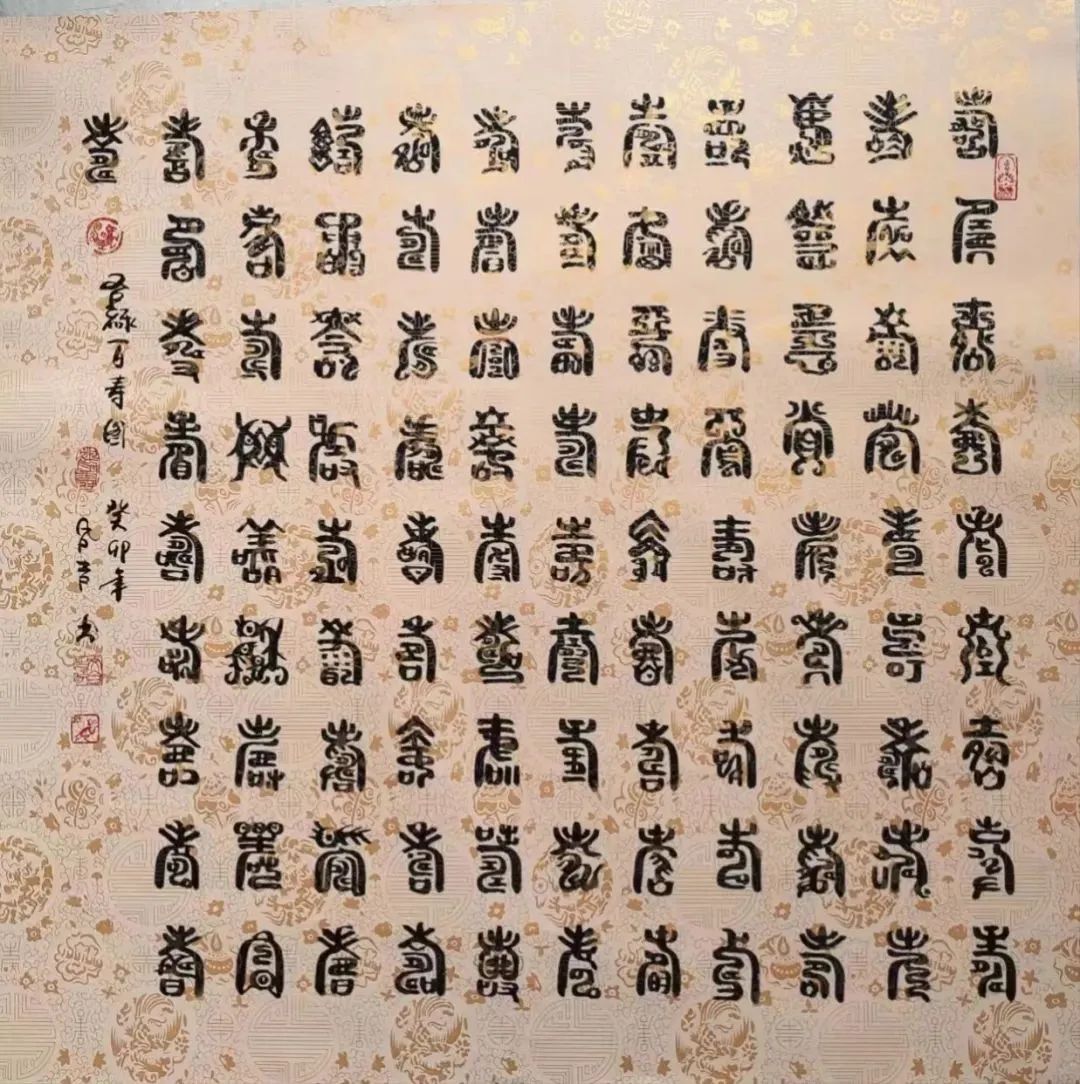 壽壽壽壽壽壽壽壽壽
壽壽壽壽壽壽壽壽壽
壽壽壽壽壽壽壽壽壽
壽壽壽壽壽壽壽壽壽
壽壽壽壽壽壽壽壽壽
壽壽壽壽壽壽壽壽壽
壽壽壽壽壽壽壽壽壽
壽壽壽壽壽壽壽壽壽
壽壽壽壽壽壽壽壽壽
壽壽壽壽壽壽壽壽壽
壽壽壽壽壽壽壽壽壽
壽
禄百寿图
癸卯年
书